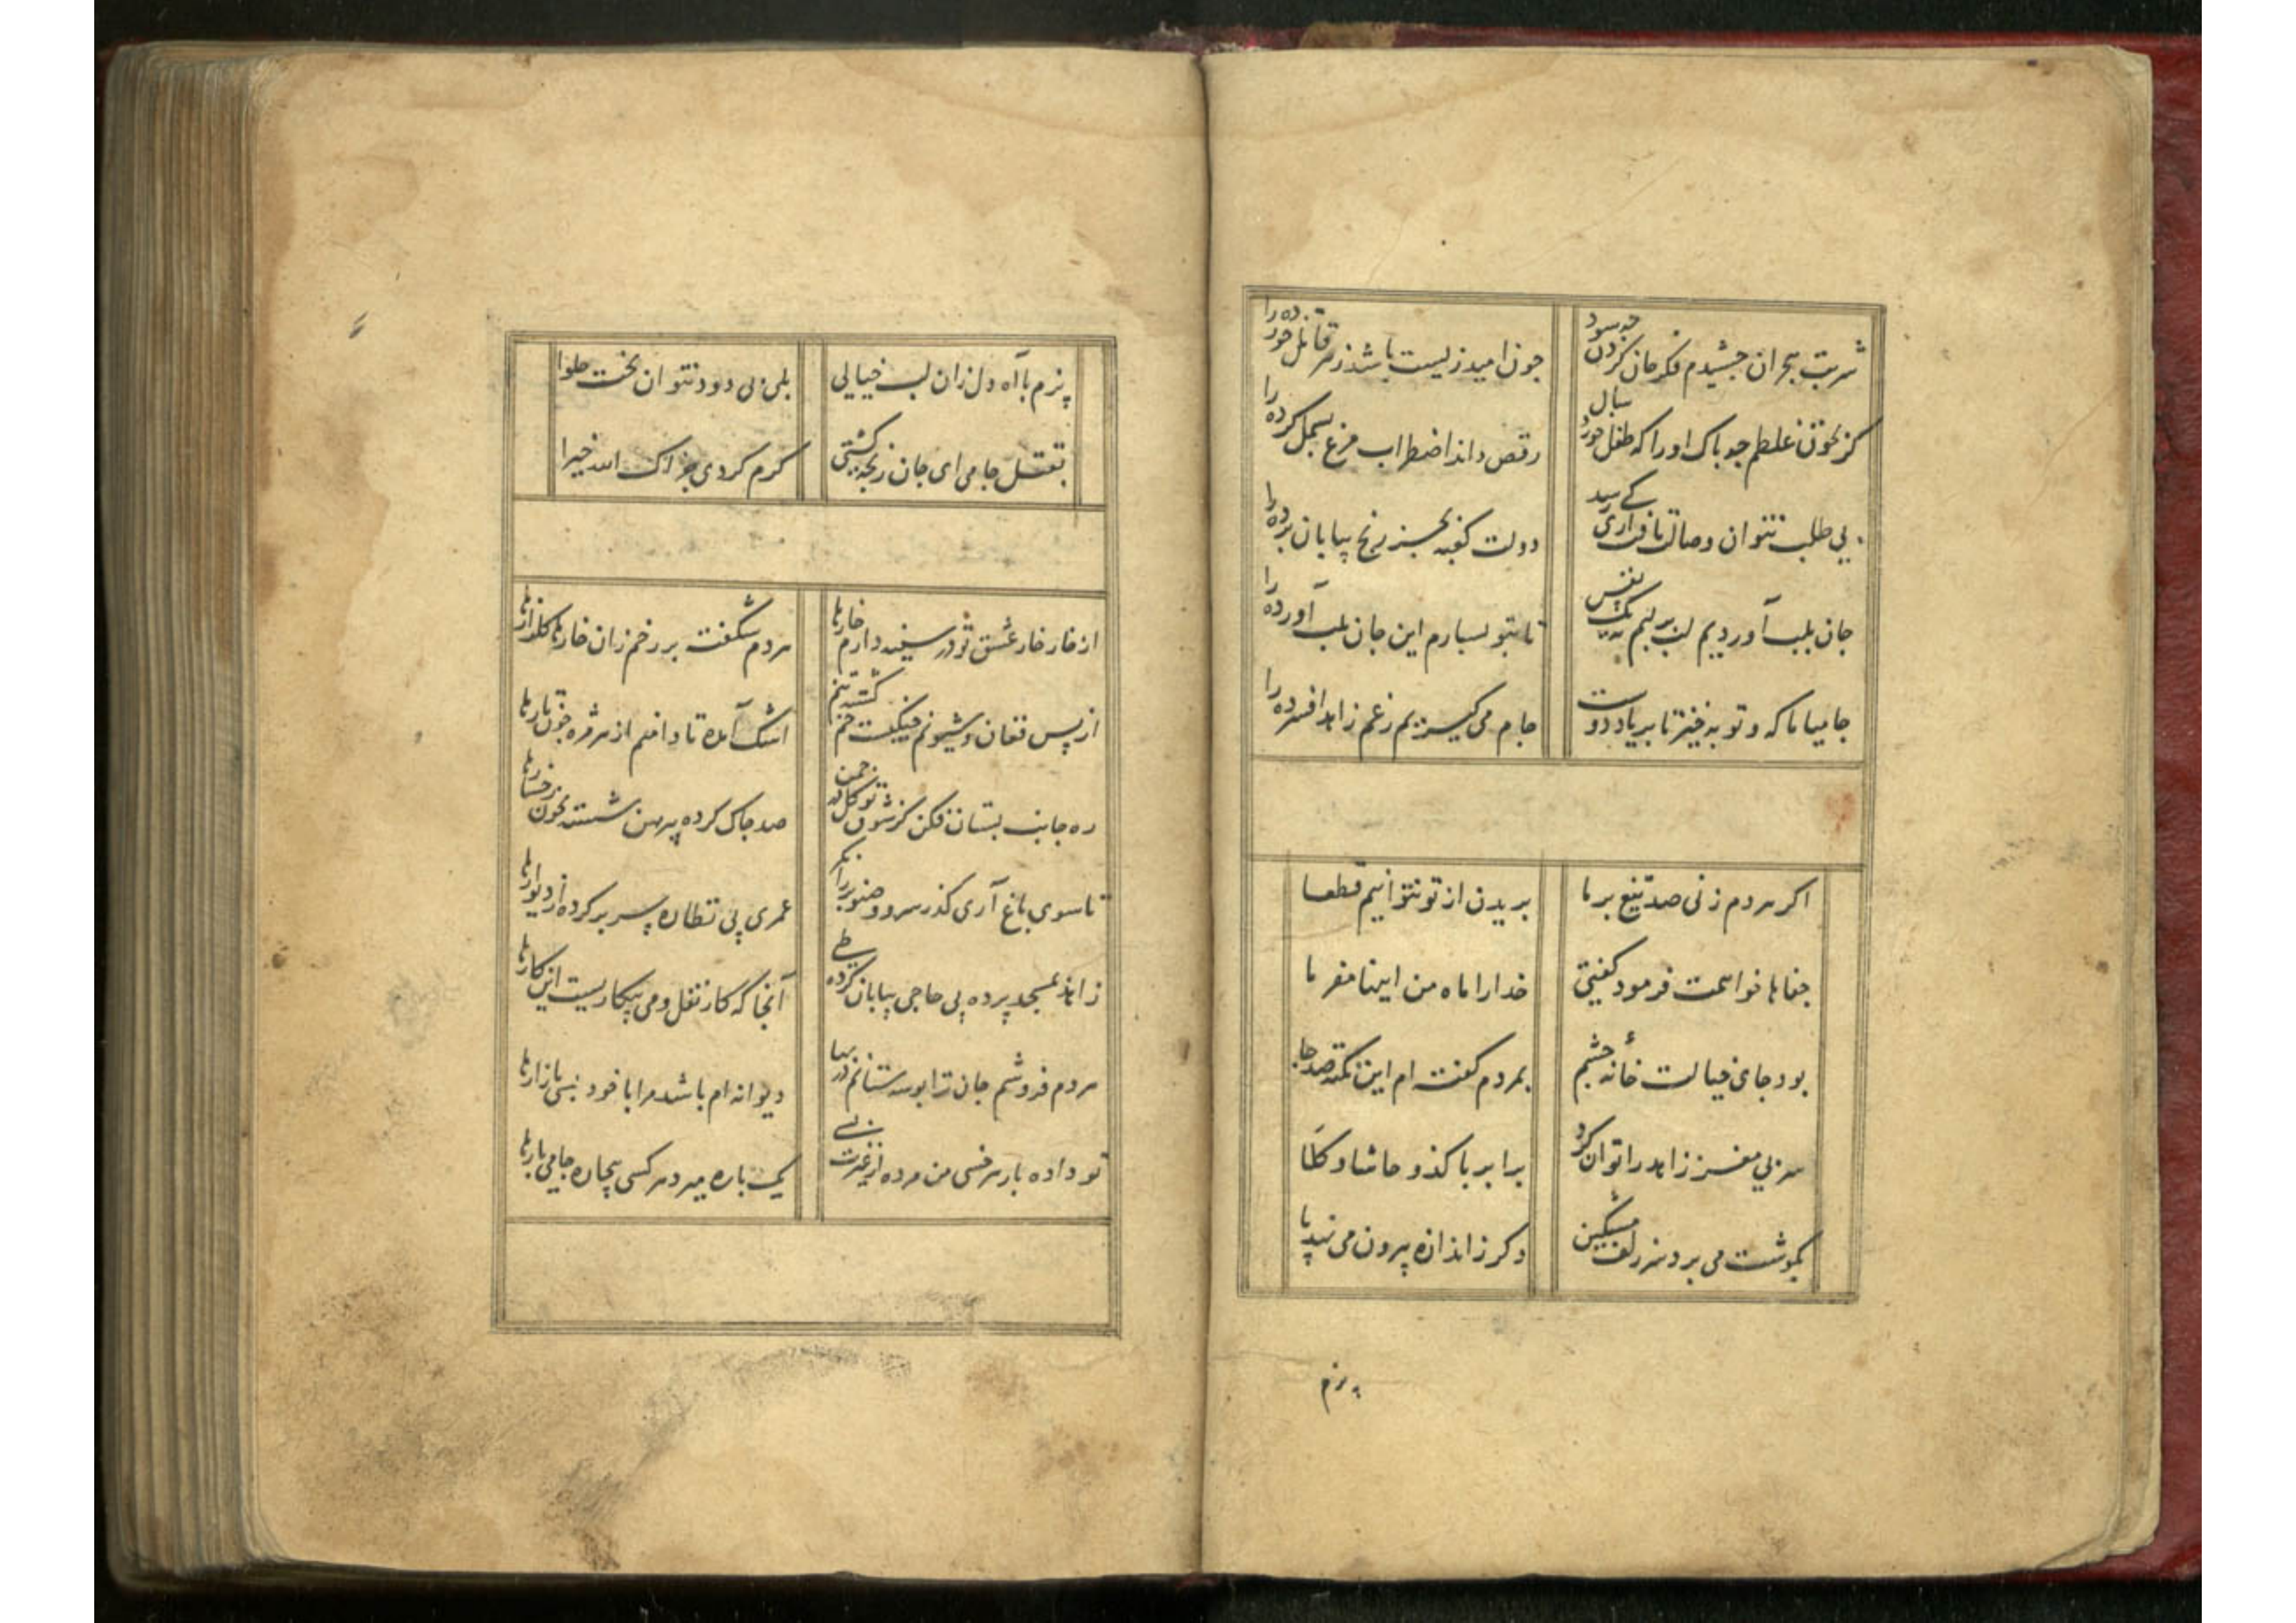 شربت هجران چشیدم فکر جان کردن چه سود
چون امید زیست باشد زهر قاتل خورده را
کز بخون غلطم چه باک اورا که طفل خورد سال
رقص داند اضطراب مرغ بسمل کرده را
بی طلب نتوان وصالت یافت آری کی رسد
دولت کعبه بجز رنج بیابان برده را
جان بلب آوردیم لب بر لبم نه یک نفس
تا بتو بسپارم این جان بلب آورده را
جامیا ما که و توبه خیز تا بر یاد دوست
جام می گیریم رغم زاهد افسرده را
اکر هردم زنی صد تیغ بر ما
بریدن از تو نتوانیم قطعا
جفاها خواهمت فرمود گفتی
خدا را ماه من اینها مفرما
بود جای خیالت خانهٔ چشم
بمردم گفته ام این نکته صد جا
سر بی مغز زاهد را توان کرد
برابر با کدو حاشا و کلا
بگوشت می برد سر زلف مشکین
دگر ز اندازه بیرون می نهد پا
پزم
پزم با آه دل زان لب خیالی
بلی بی دود نتوان پخت حلوا
بقتل جامی ای جان رنجه گشتی
کرم کردی جزاک الله خیرا
از خار خار عشق تو در سینه دارم خارها
هردم شکفته بر رخم زان خارها گلزارها
از بس فغان و شیونم چنگیست خم گشته تنم
اشک آمده تا دامنم از هر مژه چون تارها
ره جانب بستان فکن کز شوق تو گل در چمن
صد چاک کرده پیرهن شسته بخون رخسارها
تا سوی باغ آری گذر سرو و صنوبر را نگر
عمری پی نظاره سر بر کرده از دیوارها
زاهد بمسجد برده پی حاجی بیابان کرده طی
آنجا که کار نقل و می بیکاریست این کارها
هردم فروشم جان ترا بوسه ستانم در بها
دیوانه ام باشد مرا با خود بسی بازارها
تو داده بار هر خسی من مرده از غیرت بسی
یک باره میرد هر کسی بیچاره جامی بارها